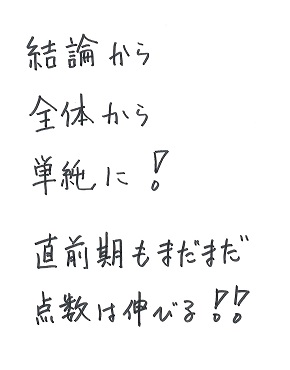 結論から
全体から
単純に!
直前期もまだまだ
点数は伸びる!!